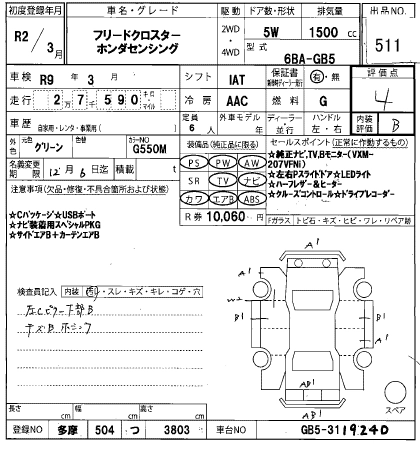 初度登録年月 車名・グレード 駆動 ドア数・形状 排気量 出品NO.
R2/3月 フリードクロスター ホンダセンシング 2WD・4WD 5W 1500cc 511
型式 6BA-GB5
車検 R9年3月 シフト IAT 保証書 有・無 評価点
走行 27590 キロ マイル 冷房 AAC 燃料 G 4
車歴 自家用・レンタ・事業用( ) 定員 6人 外車モデル 年 ディーラー・並行 ハンドル 左・右 内装評価 B
元色 色 グリーン カラーNO G550M 装備品(純正品に限る) セールスポイント(正常に作動するもの)
名義変更期限 12月6日迄 積載 t PS PW AW ★純正ナビ,TV,Bモニター(VXM-
207VFNi)
注意事項(欠品・修復・不具合箇所および状態) SR TV ナビ ★左右Pスライドドア★LEDライト
★ハーフレザー&ヒーター
★Cパッケージ★USBポート カワ エアB ABS ★クルーズコントロール★ドライブレコーダー
★ナビ装着用スペシャルPKG R券 10,060円 Fガラス トビ石・キズ・ヒビ・ワレ・リペア跡
★サイドエアB+カーテンエアB
A1
検査員記入 内装 汚レ・スレ・キズ・キレ・コゲ・穴
左Cピラー下部B
キズB
B1 B1
A1 A1
AB1
AB1
スペア
長さ cm 幅 cm 高さ cm
登録NO 多摩 504 つ 3803 車台NO GB5-3119240